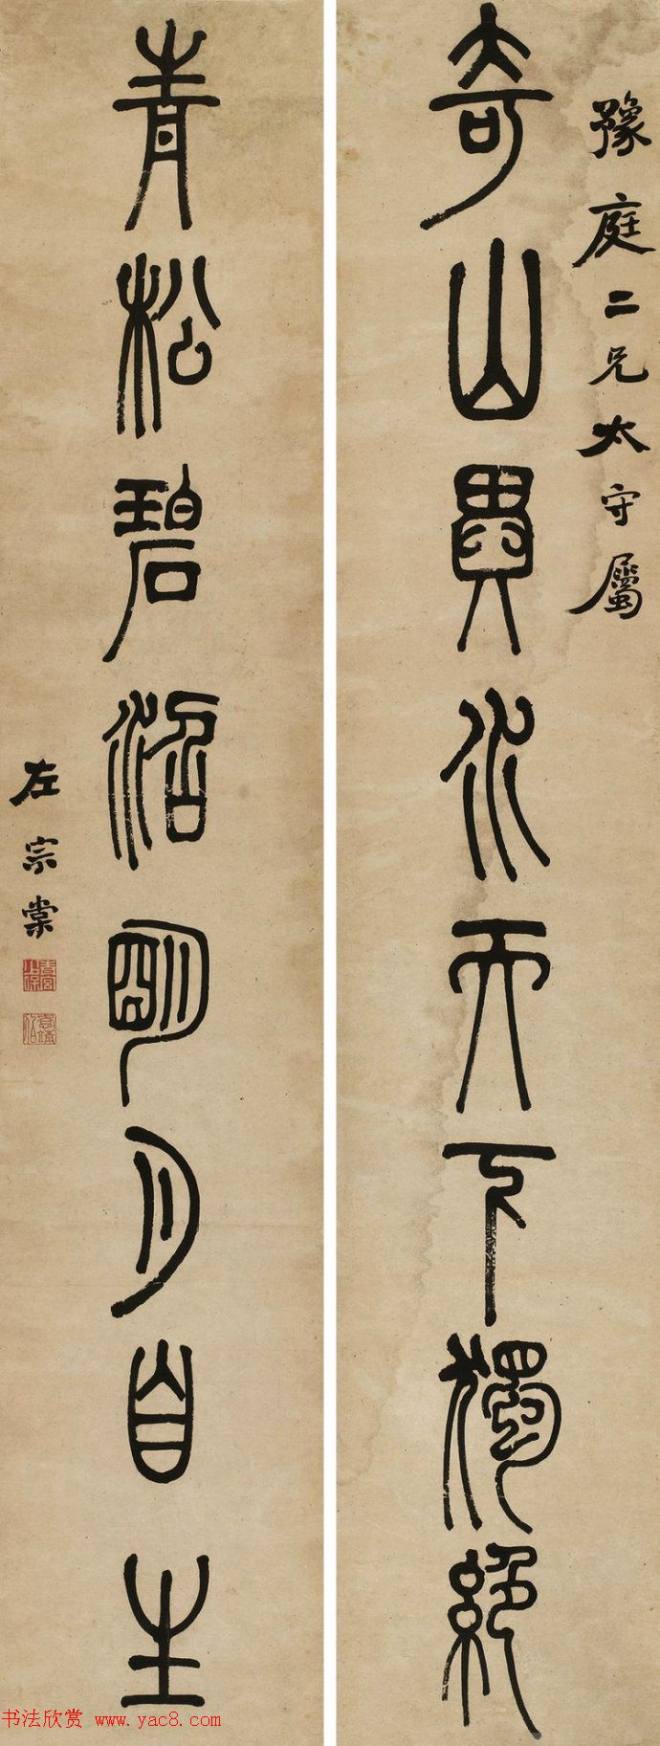 豫庭二兄太守屬
奇山異水天下獨絕
青松碧沼明月自生
左宗棠
书法欣赏 www.yac8.com